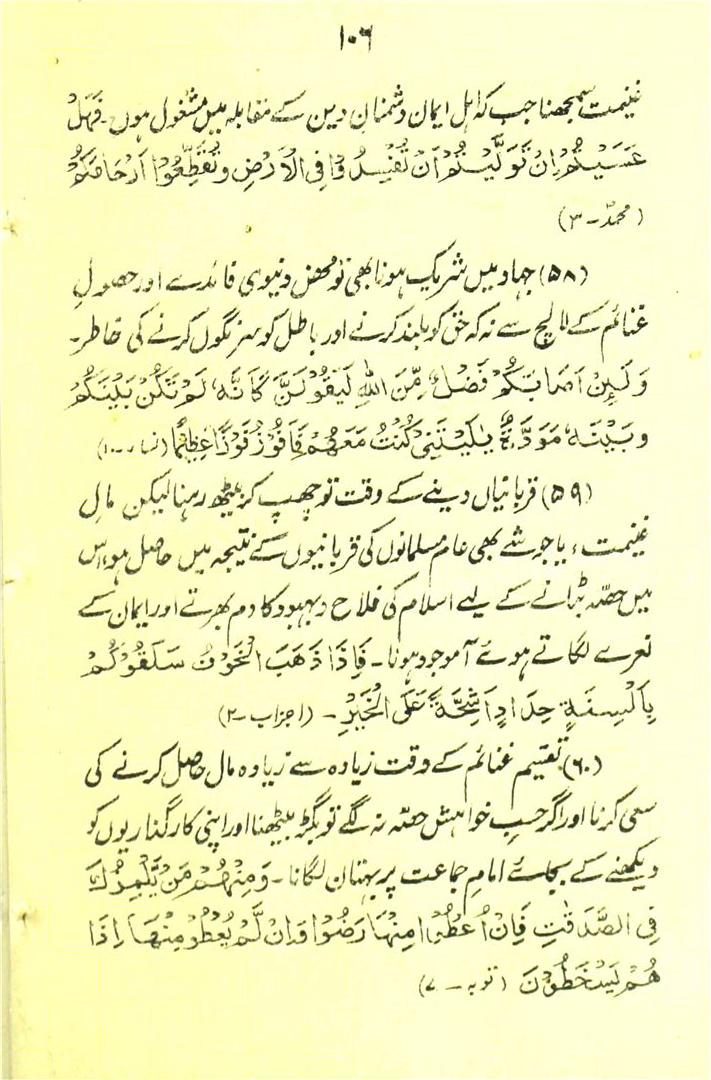 ۱۰۶
غنیمت سمجھنا جب کہ اہل ایمان دشمنانِ دین کے مقابلہ میں مشغول ہوں۔ فَهَلْ
عَسَيْتُمْ اِنْ تَوَلَّيْتُمْ اَنْ تُفْسِدُوْا فِی الْاَرْضِ وَتُقَطِّعُوْا اَرْحَامَكُمْ
(محمدؐ ۔ ۳)
(۵۸) جہاد میں شریک ہونا بھی تو محض دنیوی فائدے اور حصولِ
غنائم کے لالچ سے نہ کہ حق کو بلند کرنے اور باطل کو سرنگوں کرنے کی خاطر۔
وَلَئِنْ اَصَابَكُمْ فَضْلٌ مِّنَ اللهِ لَيَقُوْلَنَّ كَاَنَّهٗ لَمْ تَكُنْ بَيْنَكُمْ
وَبَيْنَهٗ مَوَدَّةٌ يّٰلَيْتَنِیْ كُنْتُ مَعَهُمْ فَاَفُوْزَ فَوْزًا عَظِيْمًا (نساء۔۱۰)
(۵۹) قربانیاں دینے کے وقت تو چھپ کر بیٹھ رہنا لیکن مالِ
غنیمت، یا جو شے بھی عام مسلمانوں کی قربانیوں کے نتیجہ میں حاصل ہو، اس
میں حصہ بٹرانے کے لیے اسلام کی فلاح و بہبود کا دم بھرتے اور ایمان کے
نعرے لگاتے ہوئے آ موجود ہونا۔ فَاِذَا ذَهَبَ الْخَوْفُ سَلَقُوْكُمْ
بِاَلْسِنَةٍ حِدَادٍ اَشِحَّةً عَلَی الْخَيْرِ ۔ (احزاب ۔۲)
(۶۰) تقسیم غنائم کے وقت زیادہ سے زیادہ مال حاصل کرنے کی
سعی کرنا اور اگر حسبِ خواہش حصہ نہ لگے تو بگڑ بیٹھنا اور اپنی کارگذاریوں کو
دیکھنے کے بجائے امامِ جماعت پر بہتان لگانا۔ وَمِنْهُمْ مَنْ يَّلْمِزُكَ
فِی الصَّدَقٰتِ فَاِنْ اُعْطُوْا مِنْهَا رَضُوْا وَاِنْ لَّمْ يُعْطَوْ مِنْهَا اِذَا
هُمْ يَسْخَطُوْنَ (توبہ ۔ ۷)